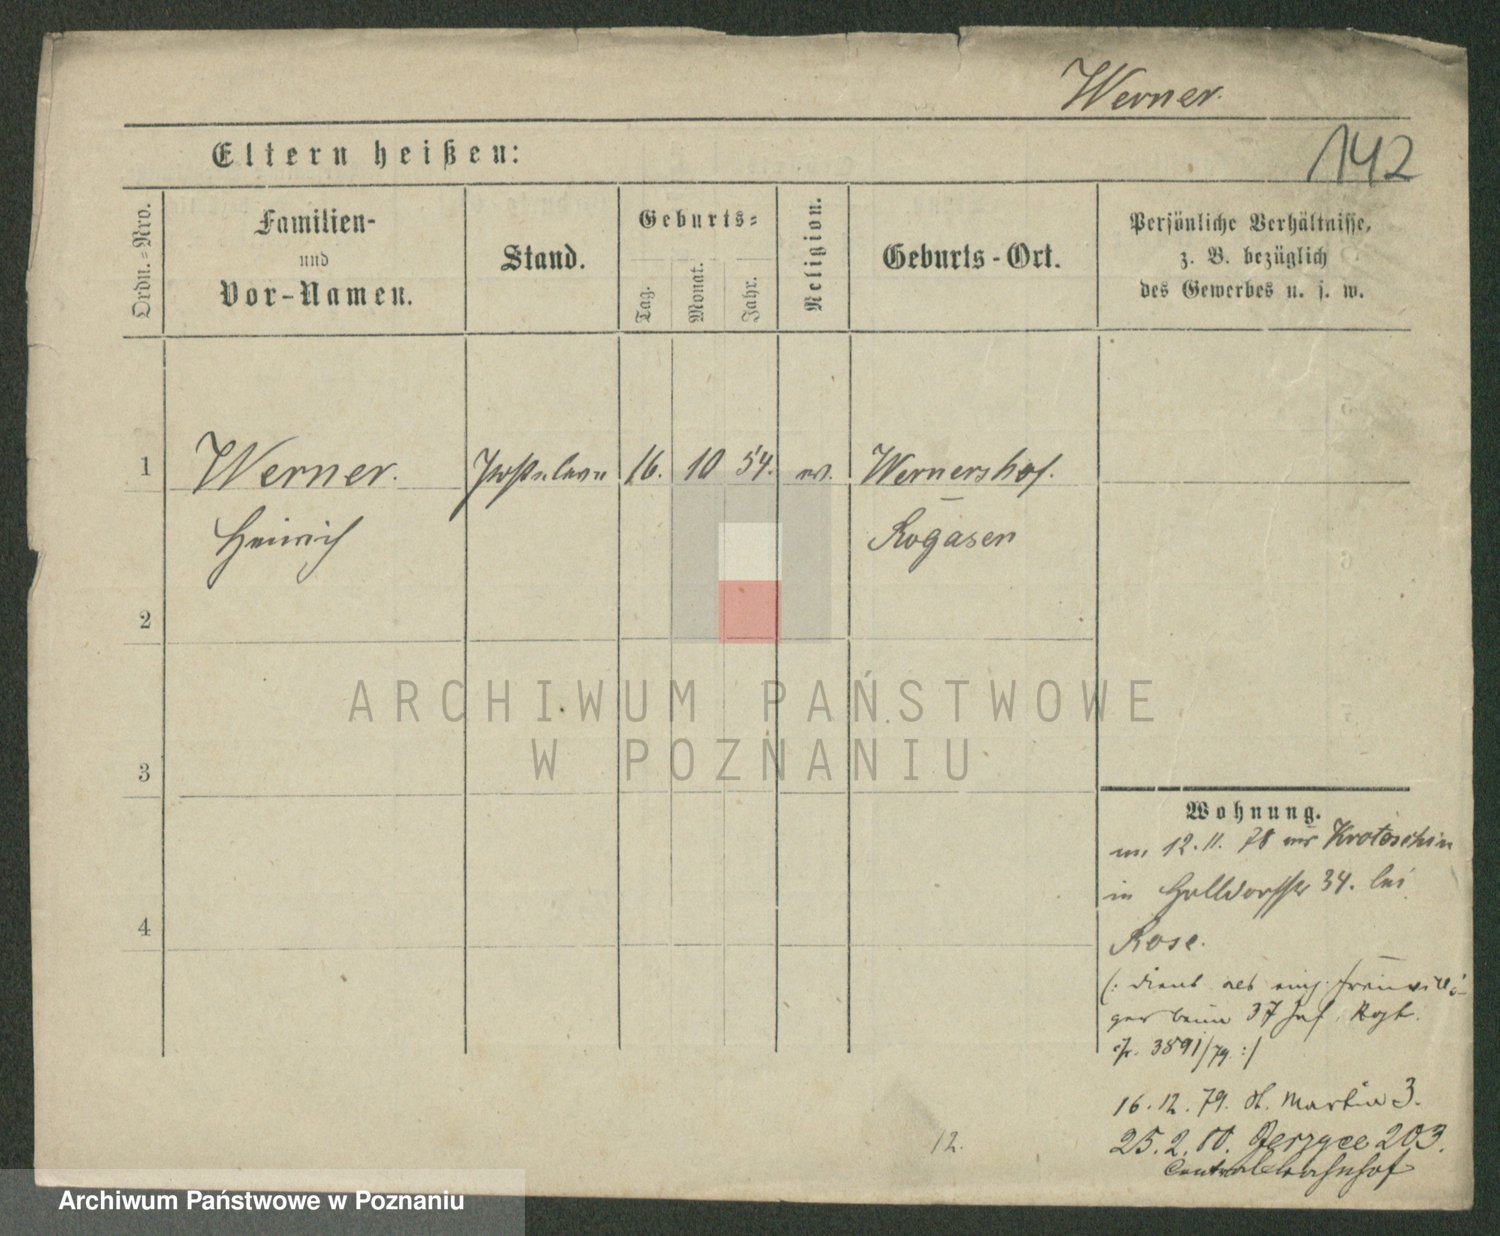 Werner.
142
Eltern heißen:
Ordn.-Nro.
Familien-
und
Vor-Namen.
Stand.
Geburts-
Tag.
Monat.
Jahr.
Religion.
Geburts-Ort.
Persönliche Verhältnisse,
z. B. bezüglich
des Gewerbes u. s. w.
1 Werner. 16. 10 54. ev. Wernershof.
Heinrich Rogasen
2
3
4
ARCHIWUM PAŃSTWOWE
W POZNANIU
Wohnung.
12. 11. 78 aus Krotoschin
in Halldorfstr 34. bei
Rose.
(: dient als einj. freiwilli-
ger beim 37 Inf. Regt.
3891/79. :)
16. 12. 79. St. Martin 3.
25. 2. 80. Jerzyce 203.
Centralbahnhof
12.
Archiwum Państwowe w Poznaniu